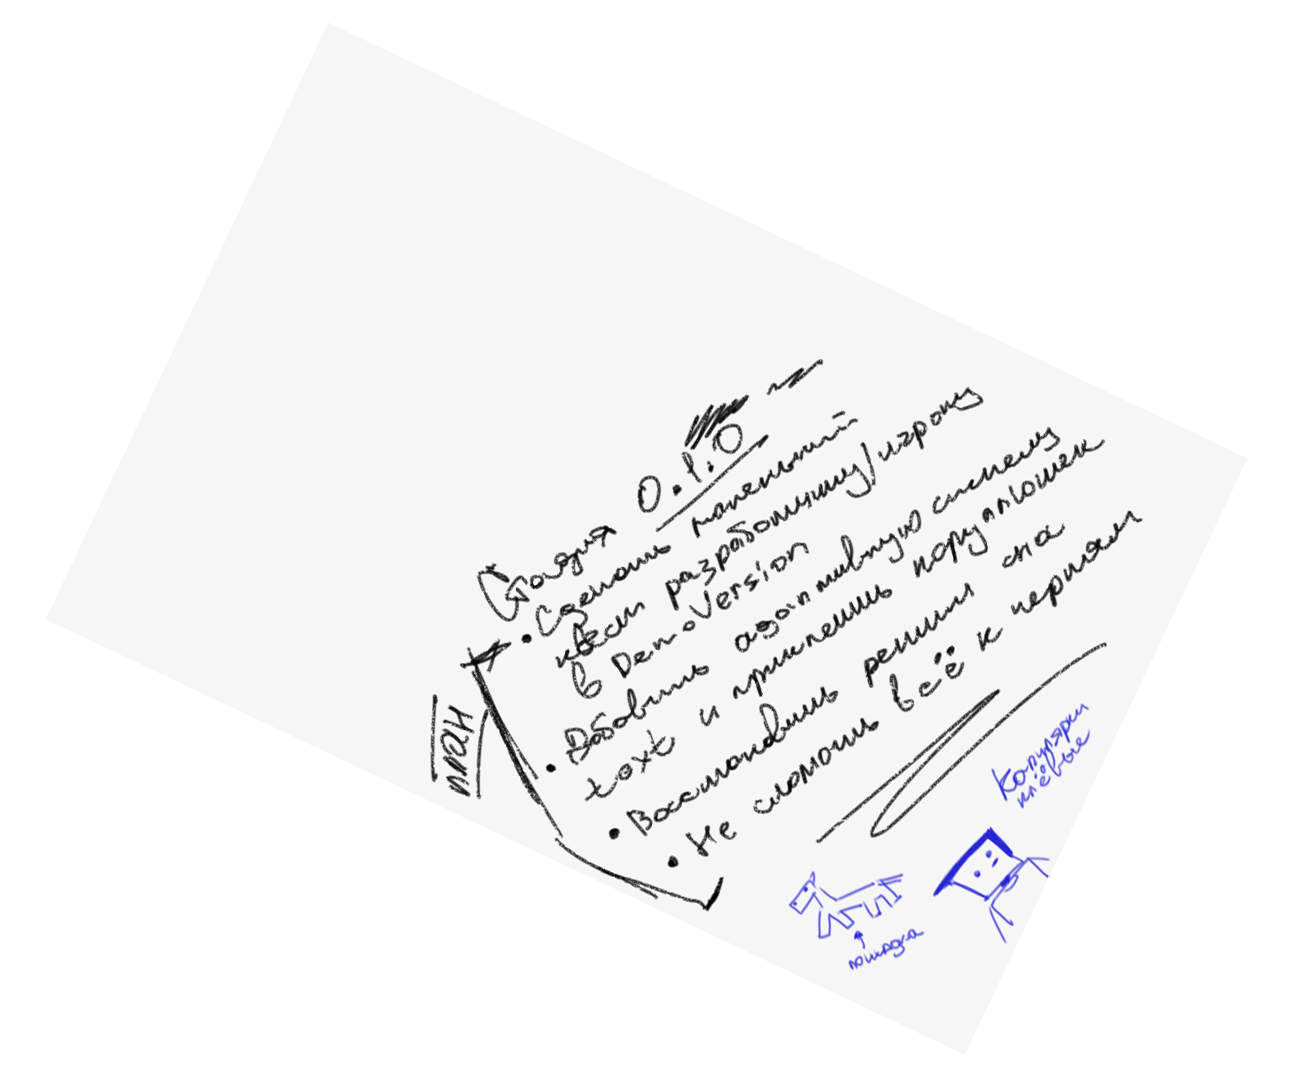 Стадия 0.1.0
• Сделать маленький
квест разработчику/игроку
в Demo Version
• Добавить адаптивную систему
text и прилепить
• Восстановить режим сна
• Не сломать всё к чертям
план
клёвые
лошадка